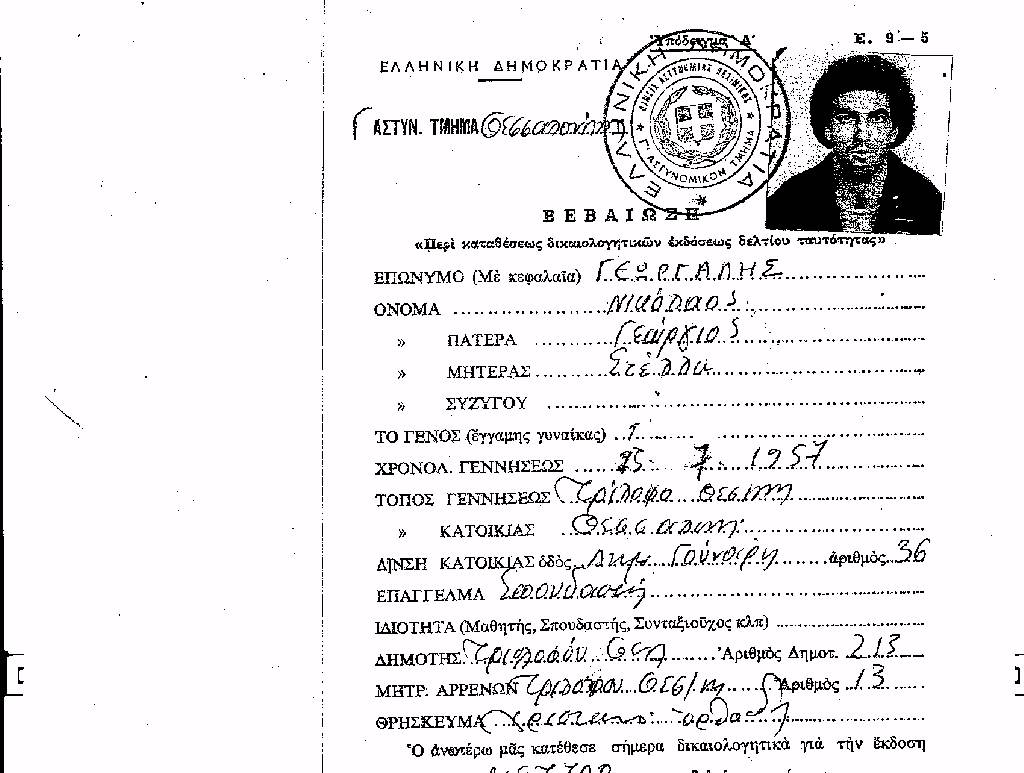 Ὑπόδειγμα Α'
Ε. 9 – 5
ΕΛΛΗΝΙΚΗ ΔΗΜΟΚΡΑΤΙΑ
Γ ΑΣΤΥΝ. ΤΜΗΜΑ Θεσσαλονίκης
ΕΛΛΗΝΙΚΗ ΔΗΜΟΚΡΑΤΙΑ
Γ' ΑΣΤΥΝΟΜΙΚΟΝ ΤΜΗΜΑ
ΒΕΒΑΙΩΣΗ
«Περὶ καταθέσεως δικαιολογητικῶν ἐκδόσεως δελτίου ταυτότητας»
ΕΠΩΝΥΜΟ (Μὲ κεφαλαῖα) ΓΕΩΡΓΑΛΗΣ
ΟΝΟΜΑ Νικόλαος
» ΠΑΤΕΡΑ Γεώργιος
» ΜΗΤΕΡΑΣ Στέλλα
» ΣΥΖΥΓΟΥ
ΤΟ ΓΕΝΟΣ (ἔγγαμης γυναίκας)
ΧΡΟΝΟΛ. ΓΕΝΝΗΣΕΩΣ 7 1957
ΤΟΠΟΣ ΓΕΝΝΗΣΕΩΣ Τρίλοφο Θεσ/κη
» ΚΑΤΟΙΚΙΑΣ
Δ)ΝΣΗ ΚΑΤΟΙΚΙΑΣ ὁδὸς Δημ. Γούναρη ἀριθμὸς 36
ΕΠΑΓΓΕΛΜΑ Σπουδαστής
ΙΔΙΟΤΗΤΑ (Μαθητής, Σπουδαστής, Συνταξιοῦχος κλπ)
ΔΗΜΟΤΗΣ Τριλόφου Θεσ/κη Ἀριθμὸς Δημοτ. 213
ΜΗΤΡ. ΑΡΡΕΝΩΝ Τριλόφου Θεσ/κη Ἀριθμὸς 13
ΘΡΗΣΚΕΥΜΑ
Ὁ ἀνωτέρω μᾶς κατέθεσε σήμερα δικαιολογητικὰ γιὰ τὴν ἔκδοση